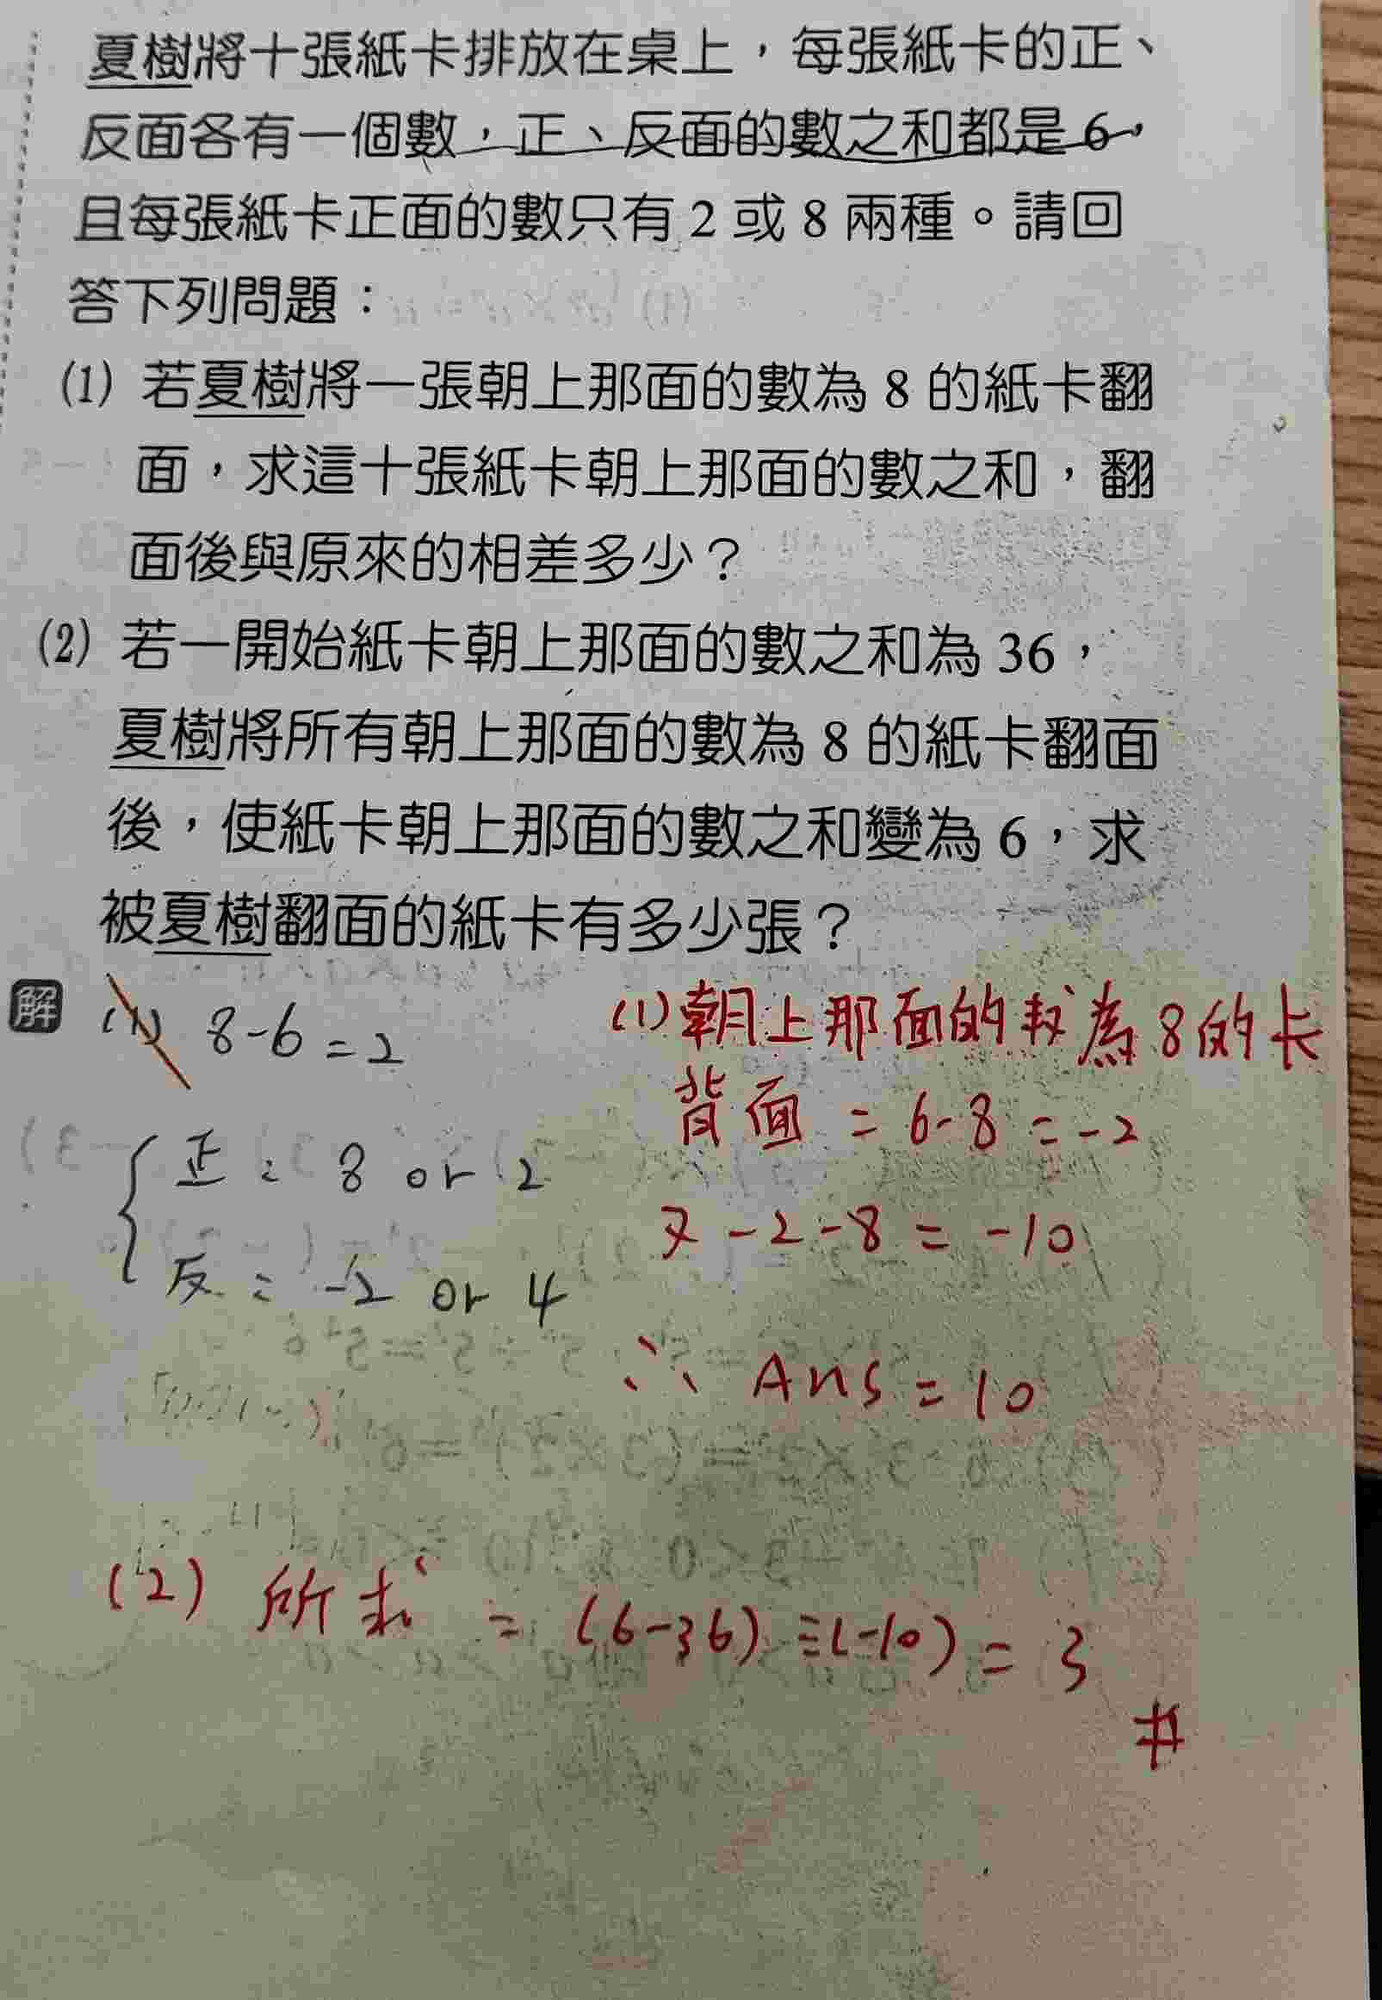 夏樹將十張紙卡排放在桌上，每張紙卡的正、
反面各有一個數，正、反面的數之和都是 6，
且每張紙卡正面的數只有 2 或 8 兩種。請回
答下列問題：
(1) 若夏樹將一張朝上那面的數為 8 的紙卡翻
面，求這十張紙卡朝上那面的數之和，翻
面後與原來的相差多少？
(2) 若一開始紙卡朝上那面的數之和為 36，
夏樹將所有朝上那面的數為 8 的紙卡翻面
後，使紙卡朝上那面的數之和變為 6，求
被夏樹翻面的紙卡有多少張？
解 (1) 8-6=2
正：8 or 2
反：-2 or 4
(1) 朝上那面的数為 8 的卡
背面 = 6-8 = -2
又 -2-8 = -10
∴ Ans = 10
(2) 所求 = (6-36)÷(-10) = 3
#